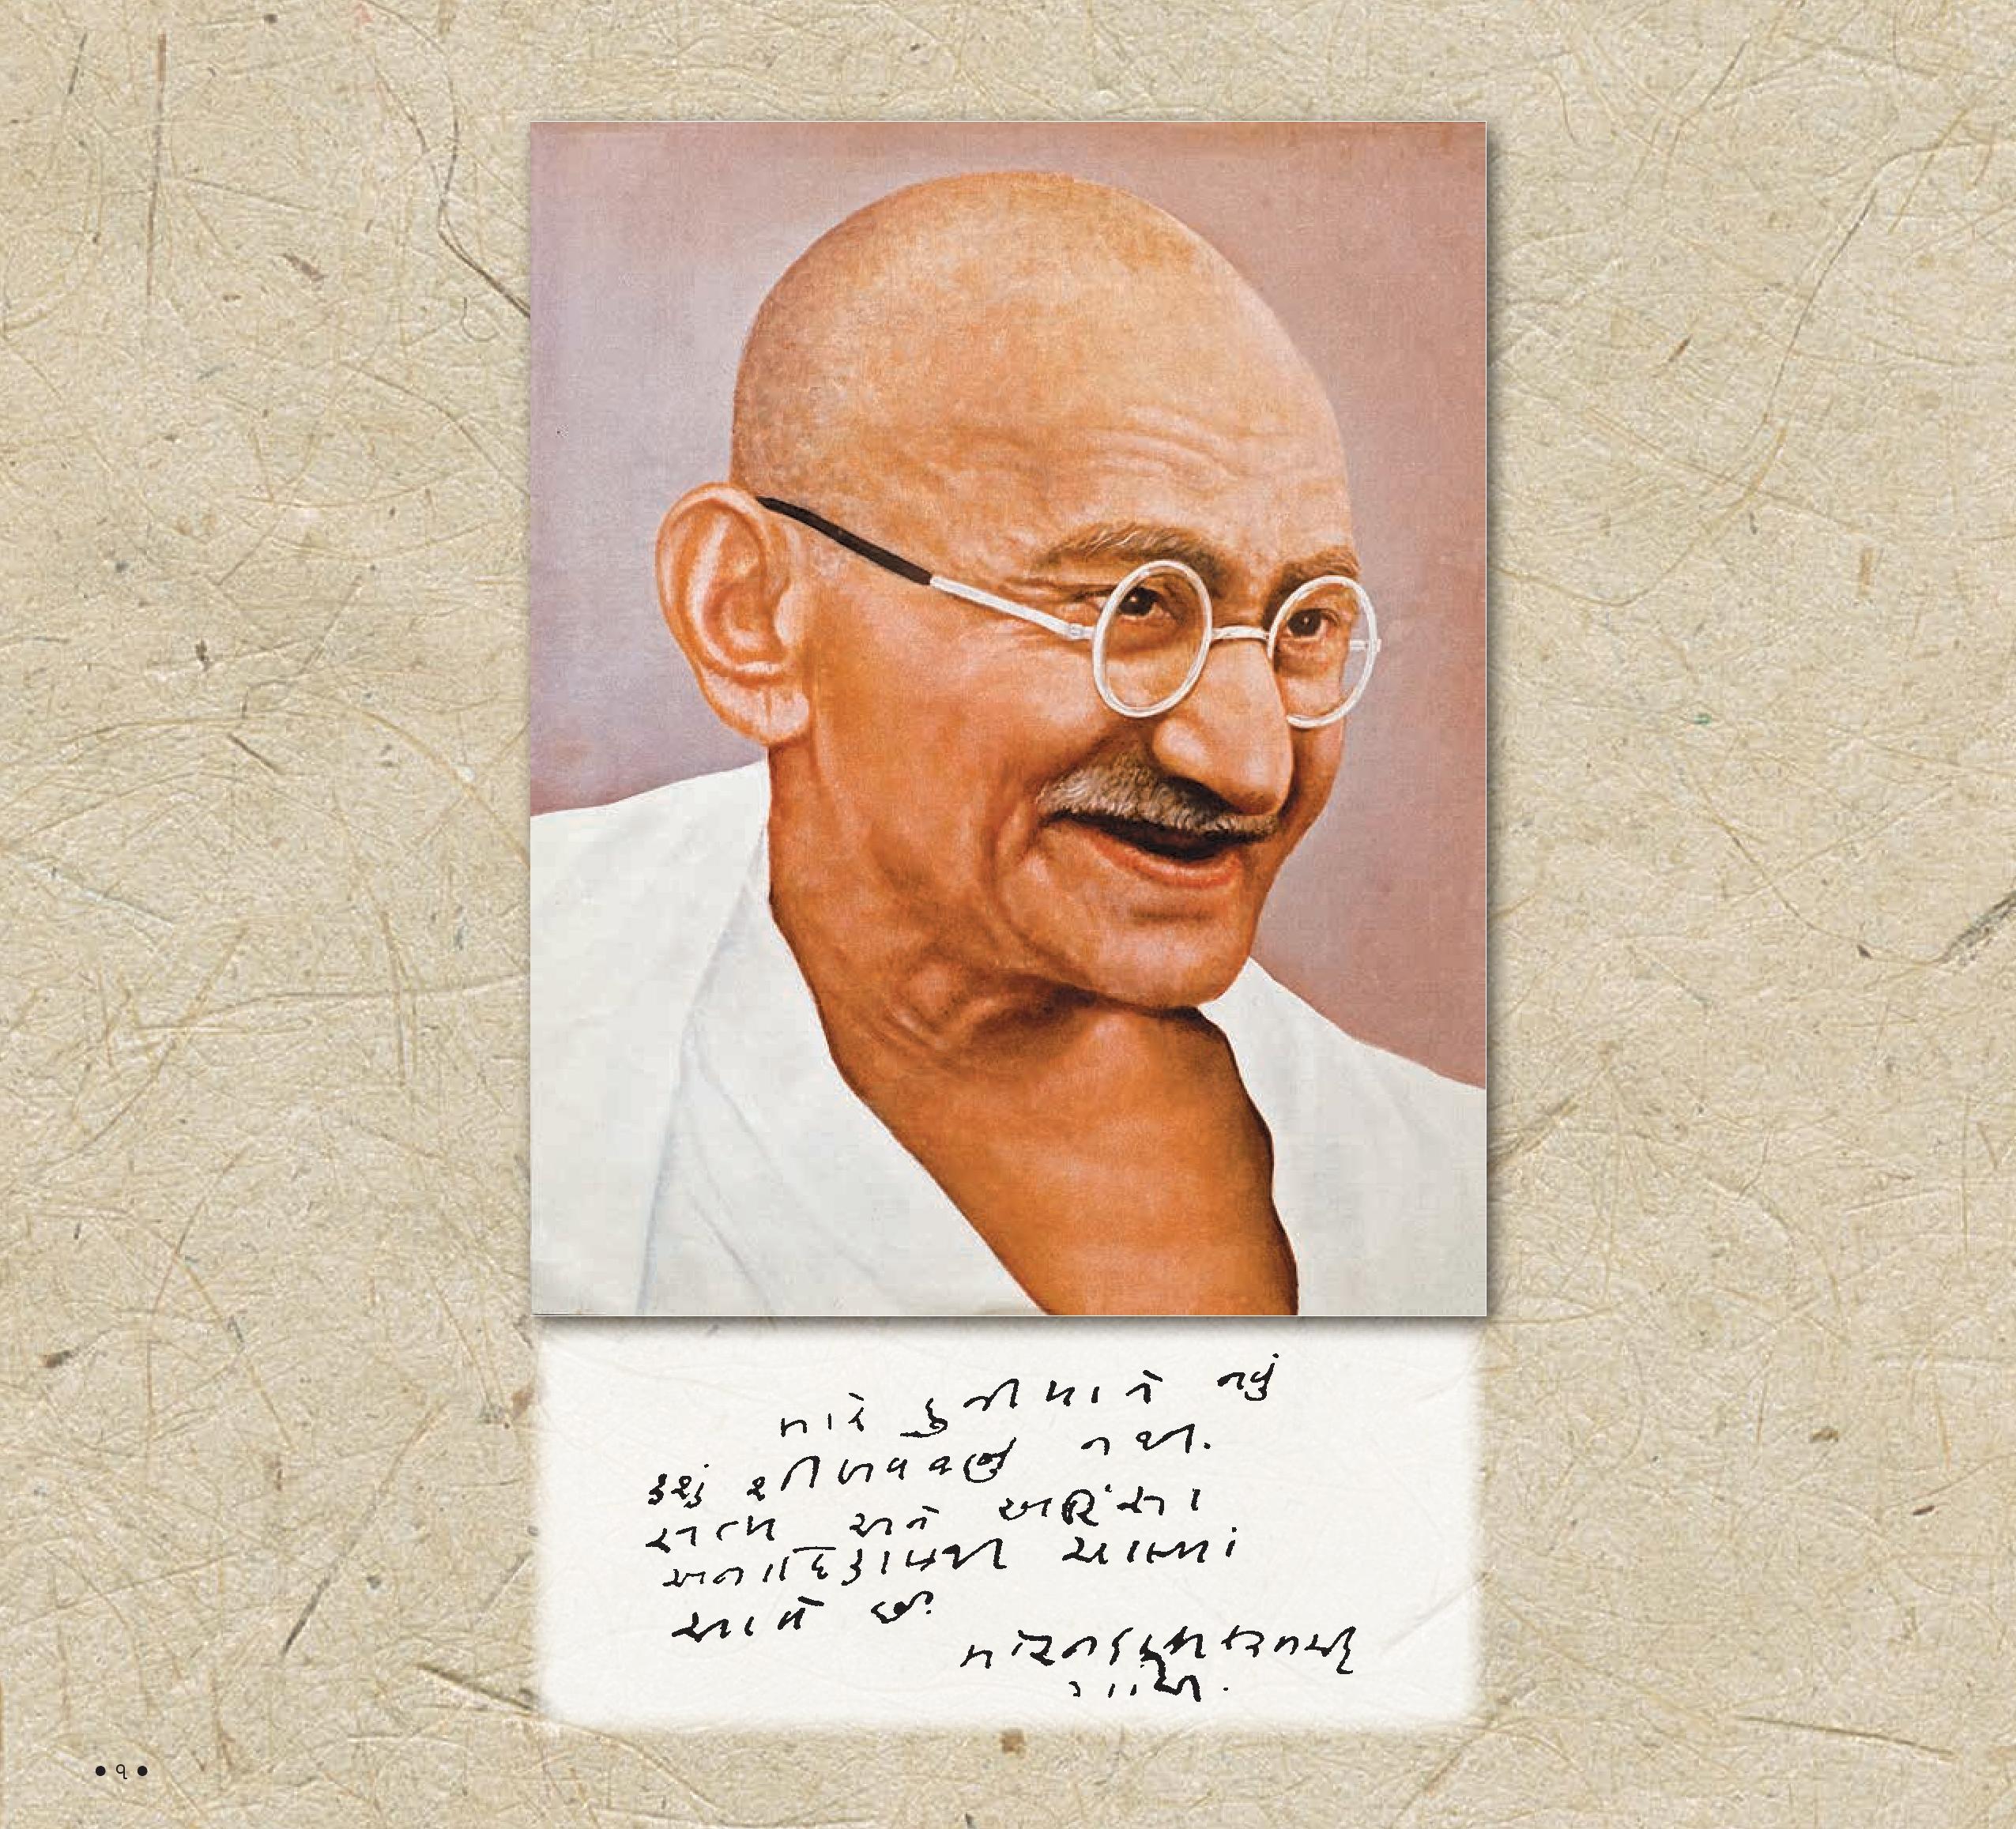 મારે દુનીયાને નવું
કશું શીખવવાનું નથી.
સત્ય અને અહિંસા
અનાદિકાળથી ચાલ્યાં
આવે છે.
મોહનદાસ કરમચંદ
ગાંધી.
• ૧ •